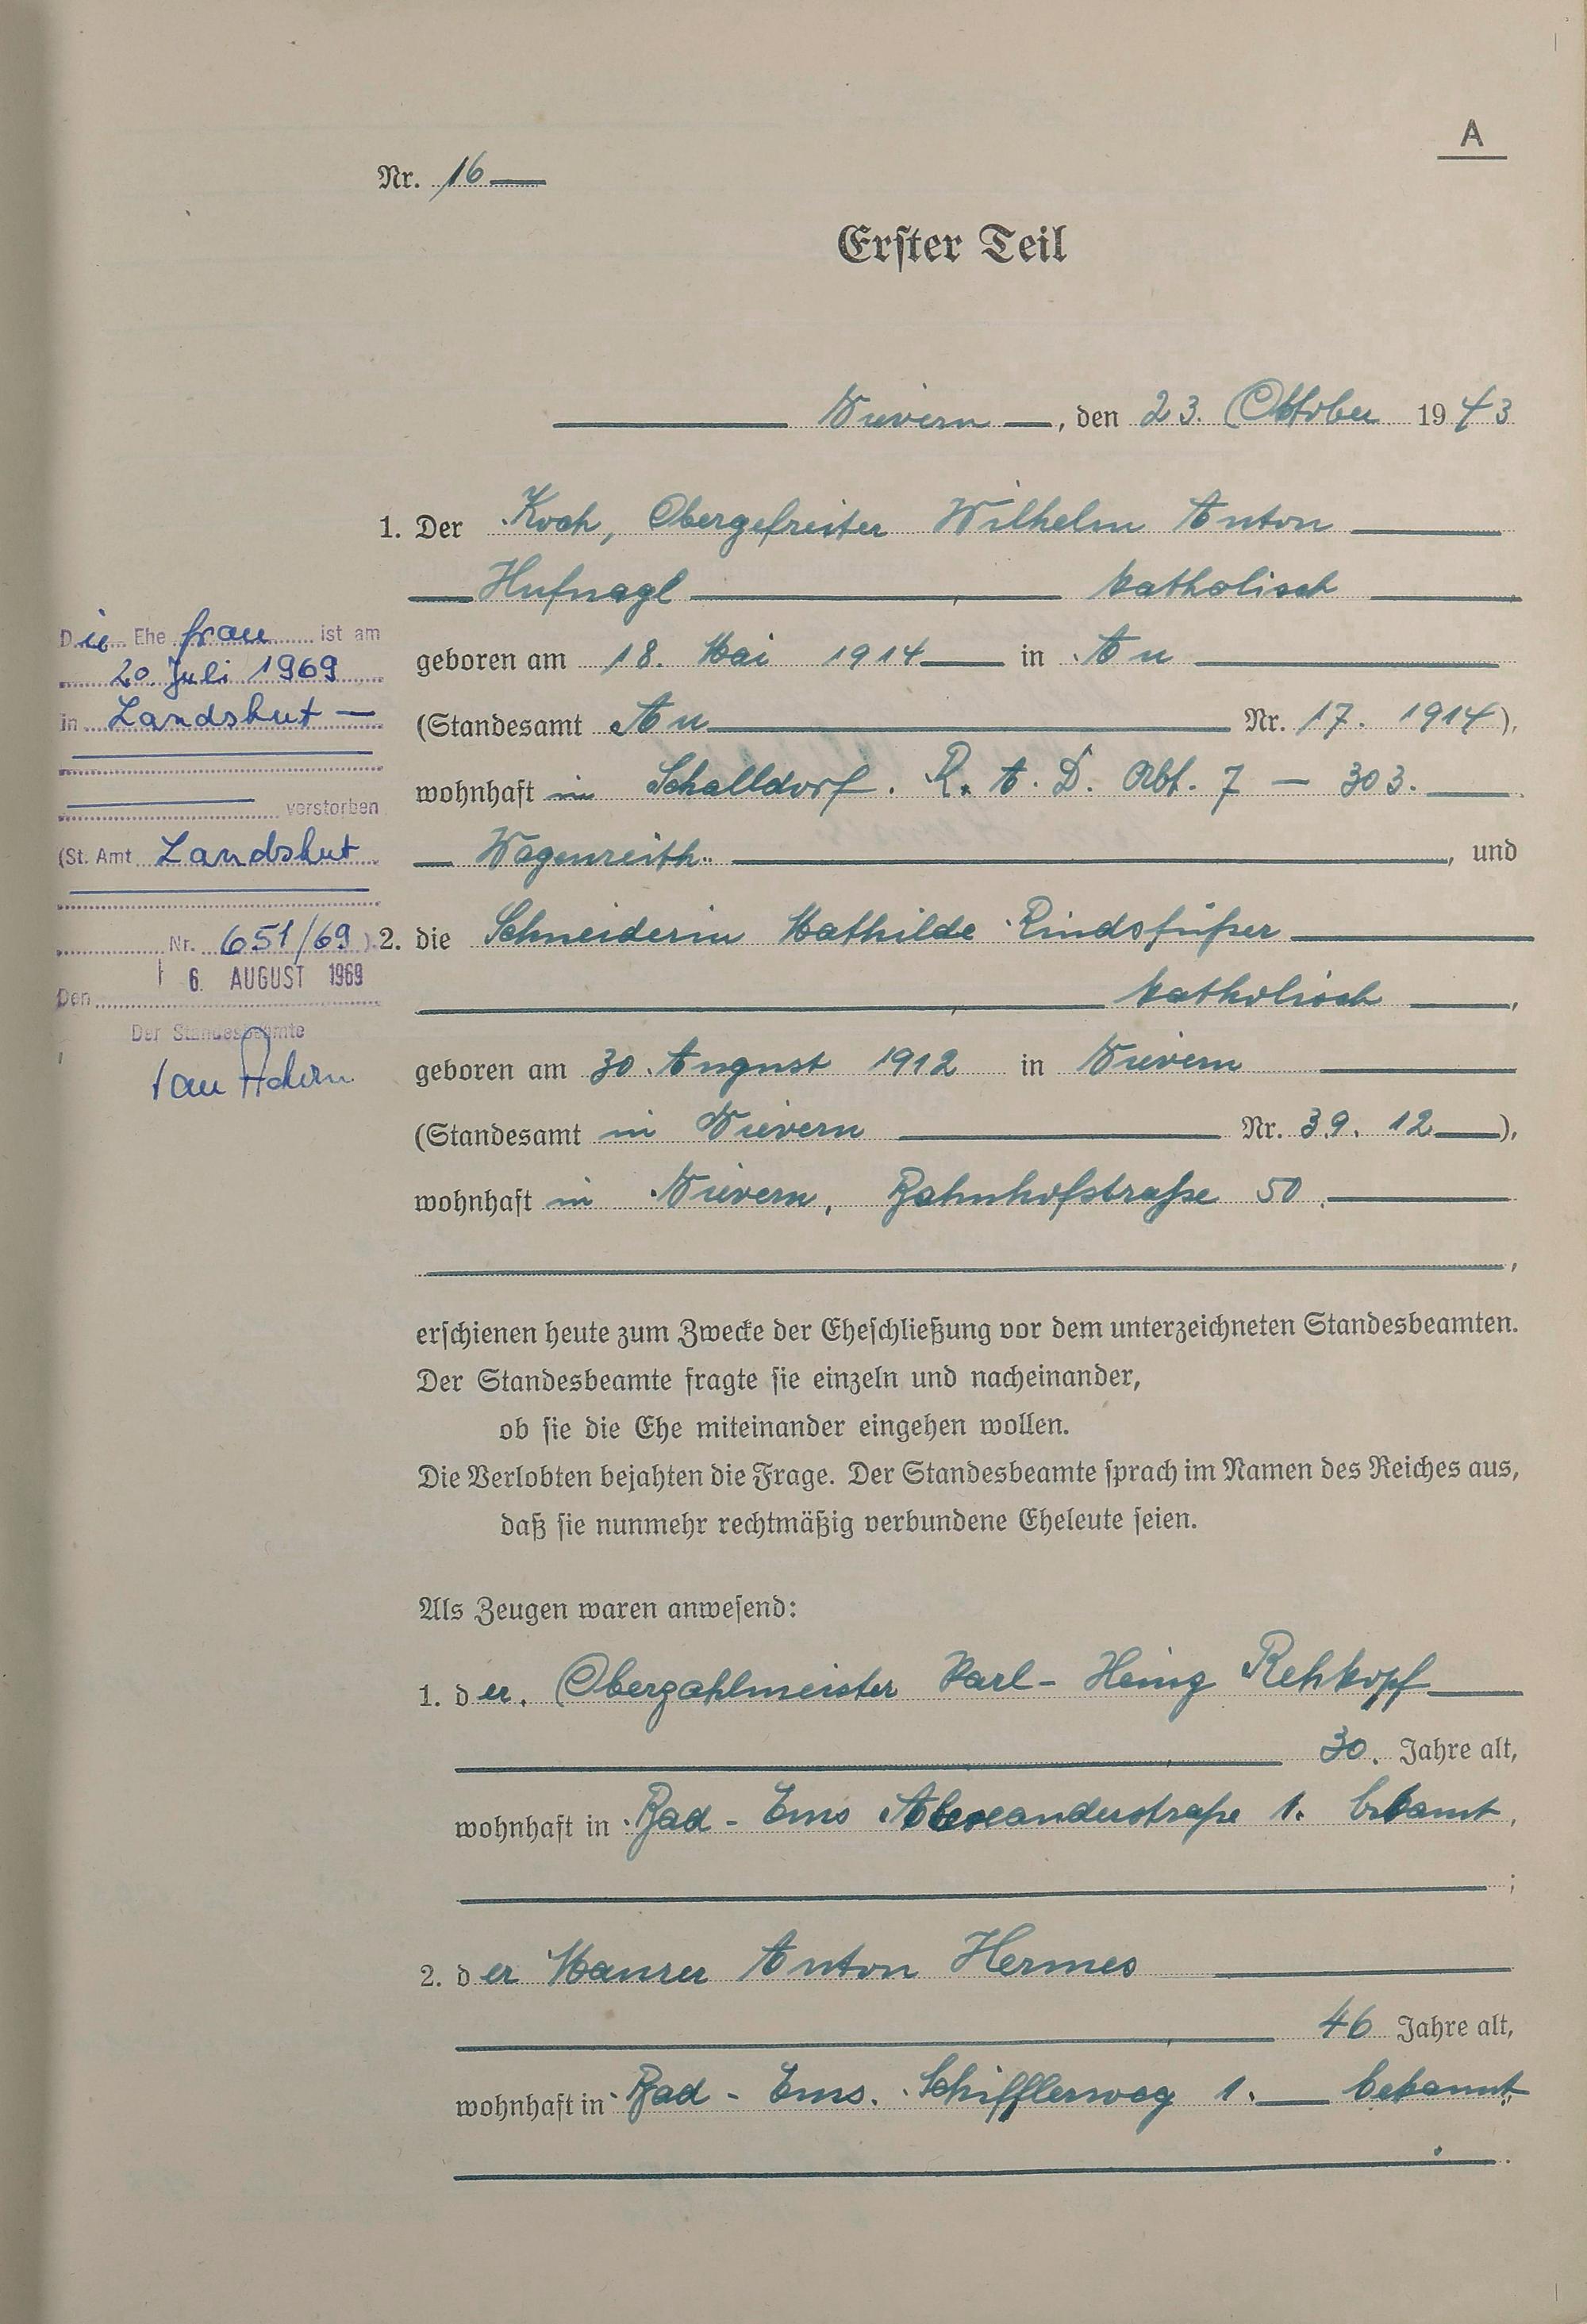 A
Nr. 16
Erster Teil
Nievern, den 23. Oktober 1943
1. Der Koch, Obergefreiter Wilhelm Anton
Hufnagl, katholisch,
geboren am 18. Mai 1914 in Au
(Standesamt Au Nr. 17. 1914),
wohnhaft in Schalldorf. R. A. D. Abt. 7 – 303.
Wagenreith.., und
2. die Schneiderin Mathilde Rindsfüßer
katholisch,
geboren am 30. August 1912 in Nievern
(Standesamt in Nievern Nr. 39. 12),
wohnhaft in Nievern, Bahnhofstraße 50.
erschienen heute zum Zwecke der Eheschließung vor dem unterzeichneten Standesbeamten.
Der Standesbeamte fragte sie einzeln und nacheinander,
ob sie die Ehe miteinander eingehen wollen.
Die Verlobten bejahten die Frage. Der Standesbeamte sprach im Namen des Reiches aus,
daß sie nunmehr rechtmäßig verbundene Eheleute seien.
Als Zeugen waren anwesend:
1. der Oberzahlmeister Karl-Heinz Rehkopf
30. Jahre alt,
wohnhaft in Bad-Ems Alexanderstraße 1.
2. der Maurer Anton Hermes
46 Jahre alt,
wohnhaft in Bad-Ems. Schifflerweg 1. bekannt
Die Ehefrau ist am
20. Juli 1969
in Landshut
verstorben
(St. Amt Landshut
Nr. 651/69)
Den 6. AUGUST 1969
Der Standesbeamte